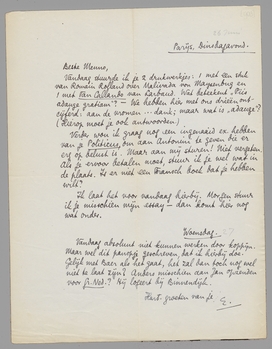 Parijs, Dinsdagavond.
Beste Menno,
Vandaag stuurde ik je 2 drukwerkjes: 1 met een stuk
van Romain Rolland over Malwida von Meysenbug en
1 met Van Collande van Larbaud. Wat beteekent "Plus
adange gratiem"? — We hebben hier met ons drieën ont-
cijferd: aan de vromen ... dank; maar wat is "adange"?
(Hierop moet je ook antwoorden)
Verder wou ik graag nog een ingenaaid ex hebben
van je Politicus, om aan Antonini te geven die er
erg op belust is. Maar aan mij sturen! Niet vergeten.
Als je ervoor betalen moet, stuur ik je wel wat in
de plaats. Is er niet een Fransch boek dat je hebben
wilt?
Ik laat het voor vandaag hierbij. Morgen stuur
ik je misschien mijn essay — dan komt hier nog
wat onder.
Woensdag.
Vandaag absoluut niet kunnen werken door koppijn.
Maar wel dit panopje geschreven, dat ik hierbij doe.
Gelijk met Baer als het gaat, het zal dan toch nog wel
niet te laat zijn? Anders misschien aan Jan opzenden
voor Gr. Ned.? Hij logeert bij Binnendijk.
Hart. groeten van je
E.